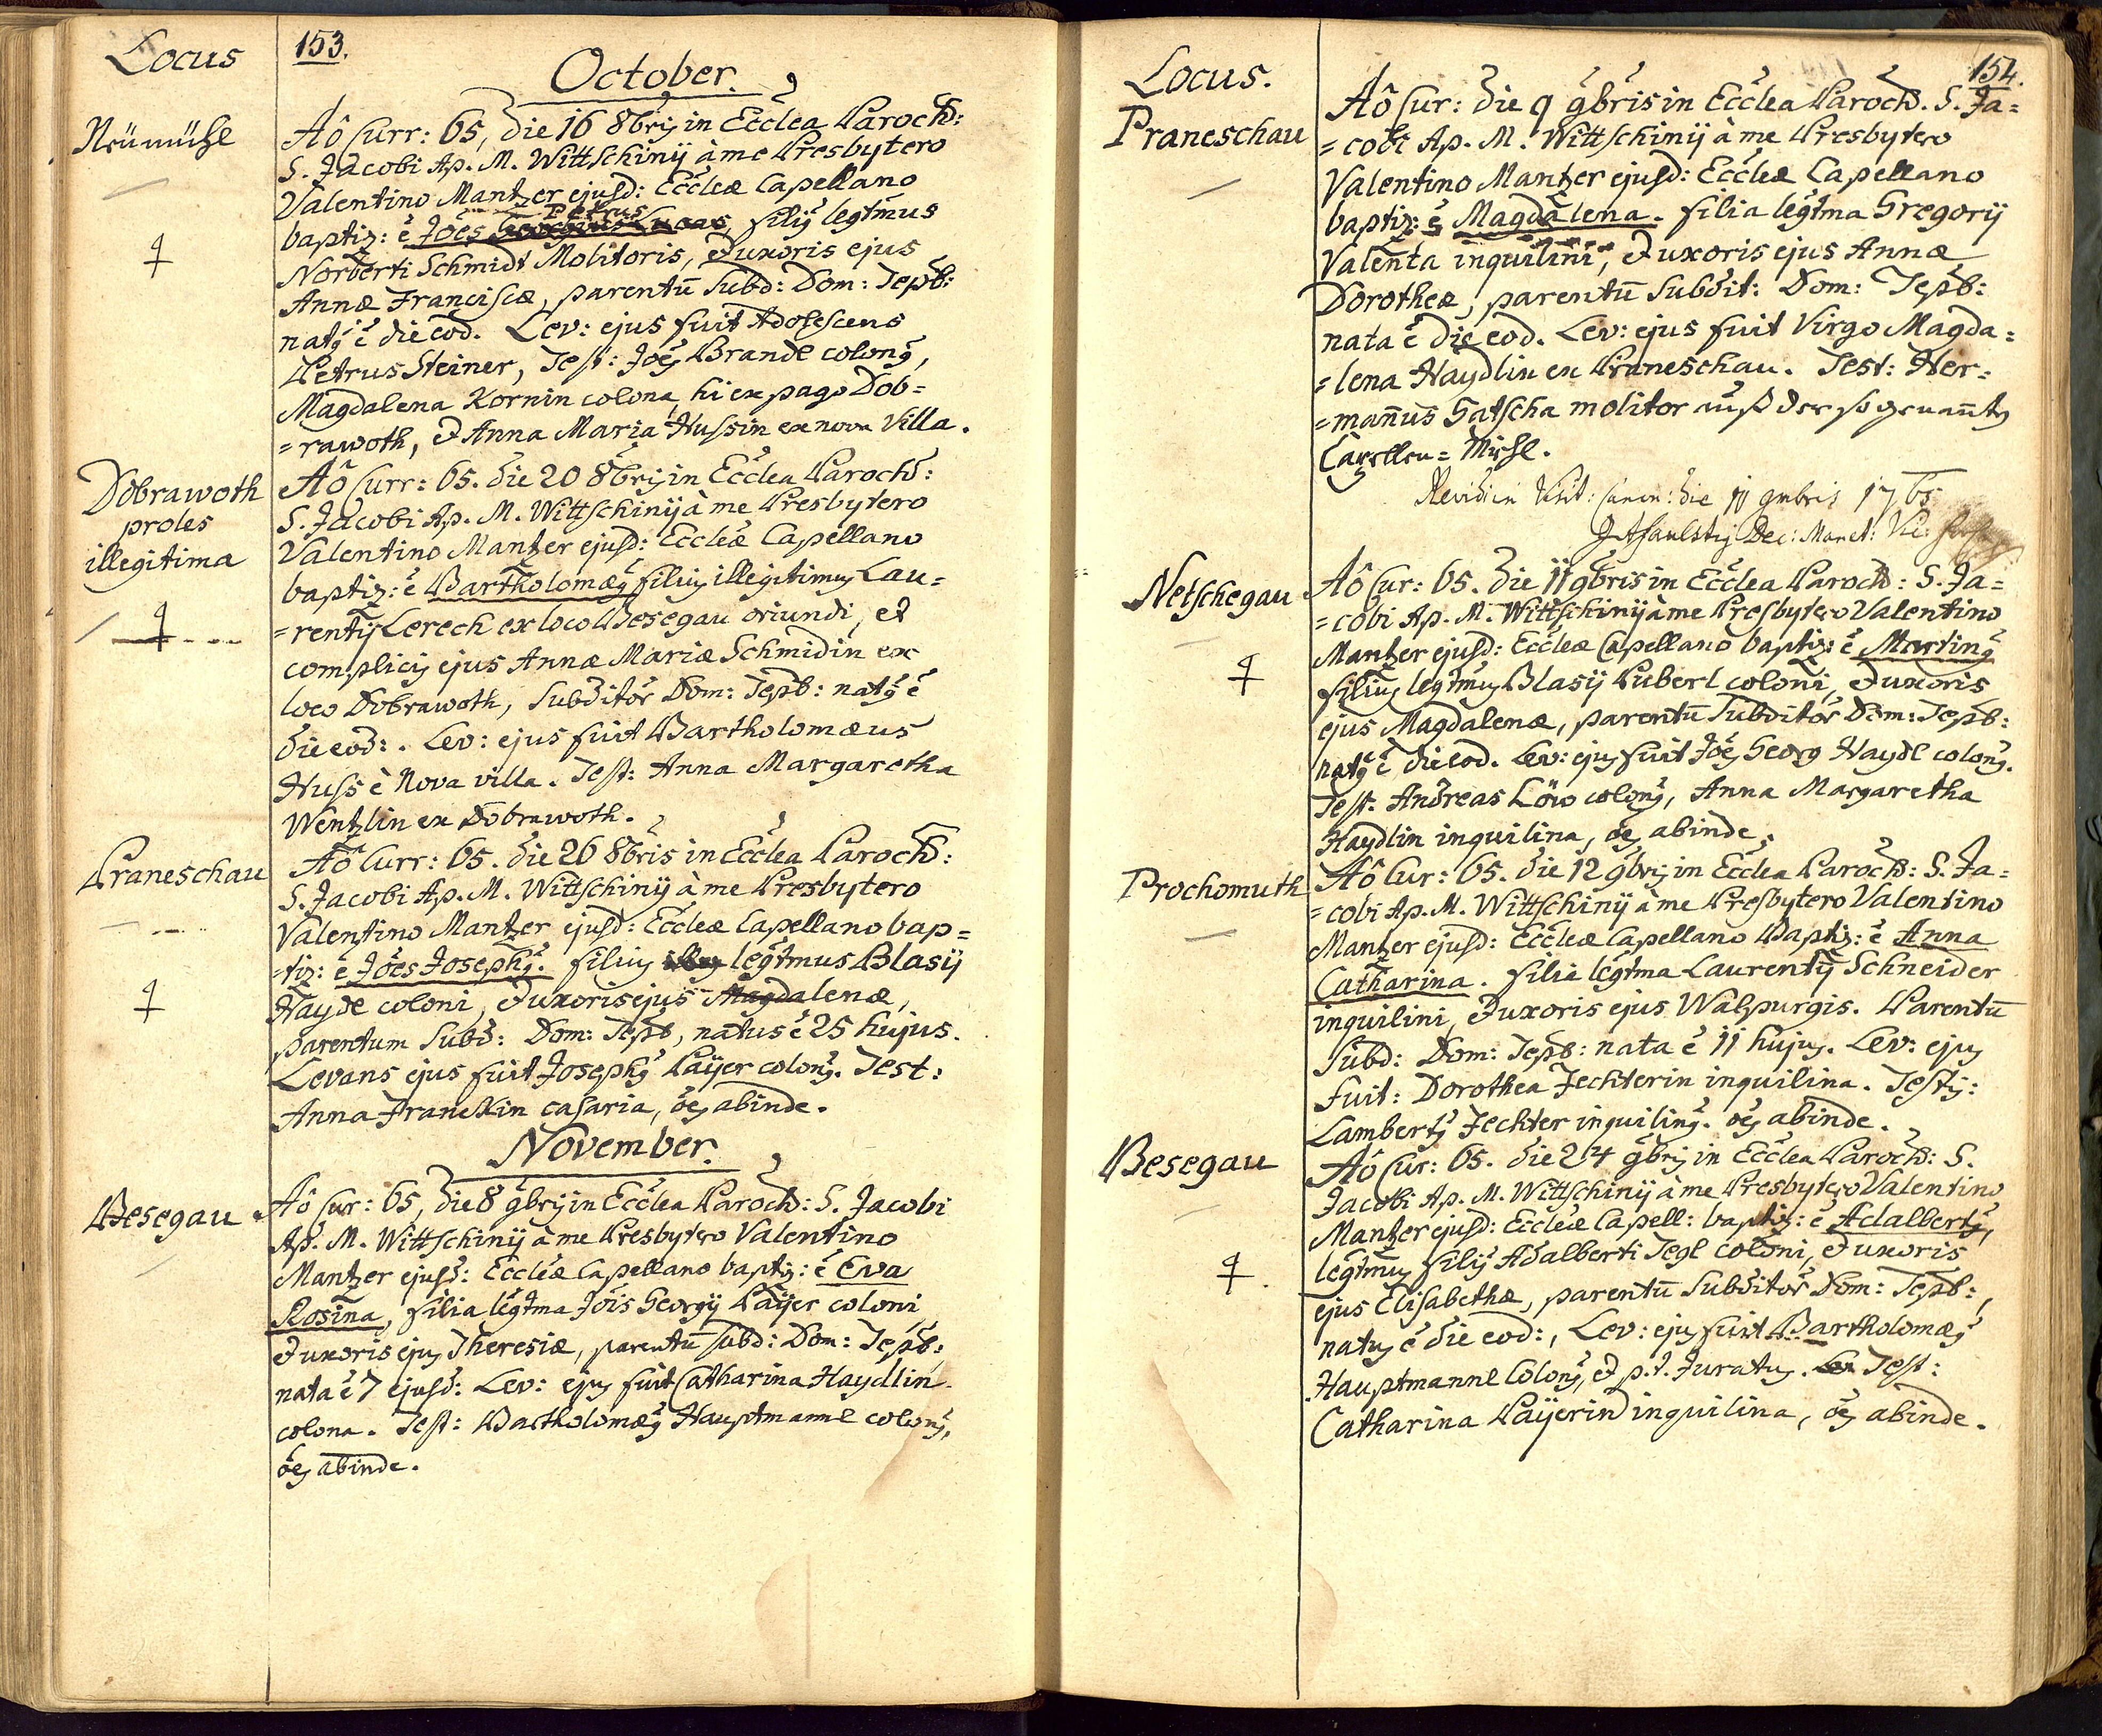 Locus
153.
October.
Neümühl
Aô Curr: 65, die 16 8bris in Ecclea Paroch:
S. Jacobi Ap. M. Wittschinij à me Presbytero
Valentino Mantzer ejusd: Eccleæ Capellano
baptiz: ẽ Jões Petrus, filij legtmus
Norberti Schmidt Molitoris, & uxoris ejus
Annæ Franciscæ, parentū Subd: Dom: Tepl:
natq ẽ die eod. Lev: ejus fuit Adolescens
Petrus Steiner, Test: Jões Brandl colonq,
Magdalena Kornin colona, hi ex pago Dob=
=rawoth, & Anna Maria Hussin ex nova Villa.
Dobrawoth
proles
illegitima
Aô Curr: 65. die 20 8bris in Ecclea Paroch:
S. Jacobi Ap. M. Wittschinij à me Presbytero
Valentino Mantzer ejusd: Eccleæ Capellano
baptiz: ẽ Bartholomæq filius illegitimus Lau=
=rentij Lerech ex loco Besegau oriundi, et
complicis ejus Annæ Mariæ Schmidin ex
loco Dobrawoth, Subditor Dom: Tepl: natq ẽ
die eod:. Lev: ejus fuit Bartholomæus
Huss è Nova villa. Test: Anna Margaretha
Wentzlin ex Dobrawoth.
Praneschau
Aô Curr: 65. die 26 8bris in Ecclea Paroch:
S. Jacobi Ap. M. Wittschinij à me Presbytero
Valentino Mantzer ejusd: Eccleæ Capellano bap=
=tiz: ẽ Jões Josephq. filius legtmus Blasij
Haydl coloni, & uxoris ejus Magdalenæ,
parentum Subd: Dom: Tepl, natus ẽ 25 hujus.
Levans ejus fuit Josephq Paijer colonq. Test:
Anna Franckin casaria, oẽs abinde.
November.
Besegau
Aô Cur: 65, die 8 9bris in Ecclea Paroch: S. Jacobi
Ap. M. Wittschinij à me Presbytero Valentino
Mantzer ejusd: Eccleæ Capellano baptiz: ẽ Eva
Rosina, filia legtma Jõis Georgij Paijer coloni
& uxoris ejus Theresiæ, parentū subd: Dom: Tepl:
nata ẽ 7 ejusd: Lev: ejus fuit Catharina Haydlin
colona. Test: Bartholomæq Hauptmannl colonq,
oẽs abinde.
Locus.
154.
Praneschau
Aô Cur: die 9 9bris in Ecclea Paroch. S. Ja=
=cobi Ap. M. Wittschinij à me Presbytero
Valentino Mantzer ejusd: Eccleæ Capellano
baptiz: ẽ Magdalena. filia legtma Gregorij
Valenta inquilini, & uxoris ejus Annæ
Dorotheæ, parentū Subdit: Dom: Tepl:
nata ẽ die eod. Lev: ejus fuit Virgo Magda=
=lena Haydlin ex Praneschau. Test: Her=
=mañus Gatscha molitor auß der so genannten
Capellen=Mühl.
Revidi in Visit: Canon: die 11 9mbris 1765
Dec: Manet: Vic:
Netschegau
Aô Cur: 65. die 11 9bris in Ecclea Paroch: S. Ja=
=cobi Ap. M. Wittschinij à me Presbytero Valentino
Mantzer ejusd: Eccleæ Capellano baptiz: ẽ Martinq
filius legtmus Blasij Puberl coloni, & uxoris
ejus Magdalenæ, parentū Subditor Dom: Tepl:
natq ẽ die eod. Lev: ejus fuit Jões Georg Haydl colonq.
Test. Andreas Löw colonq, Anna Margaretha
Haydlin inquilina, oẽs abinde.
Prochomuth
Aô Cur: 65. die 12 9bris in Ecclea Paroch: S. Ja=
=cobi Ap. M. Wittschinij à me Presbytero Valentino
Mantzer ejusd: Eccleæ Capellano Baptiz: ẽ Anna
Catharina. filia legtma Laurentij Schneider
inquilini, & uxoris ejus Walpurgis. Parentū
Subd: Dom: Tepl: nata ẽ 11 hujus. Lev: ejus
Fuit: Dorothea Fechterin inquilina. Testis:
Lambertq Fechter inquilinq. oẽs abinde.
Besegau
Aô Cur: 65. die 24 9bris in Ecclea Paroch: S.
Jacobi Ap. M. Wittschinij à me Presbytero Valentino
Mantzer ejusd: Eccleæ Capell: baptiz: ẽ Adalbertq,
legtmus filij Adalberti Tegl coloni, & uxoris
ejus Elisabethæ, parentū Subditor Dom: Tepl:,
natus ẽ die eod:, Lev: ejus fuit Bartholomæq
Hauptmannl Colonq, & p.t. Juratus. Test:
Catharina Paijerin inquilina, oẽs abinde.